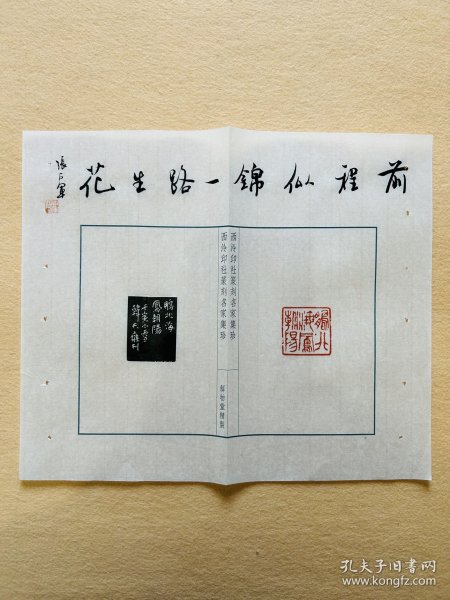 前程似锦一路生花
張
鵬北海鳳朝陽
西泠印社篆刻名家集珍
西泠印社篆刻名家集珍
鵬北海
鳳朝陽
韓天雍刊
孔夫子旧书网
www.kongfz.com